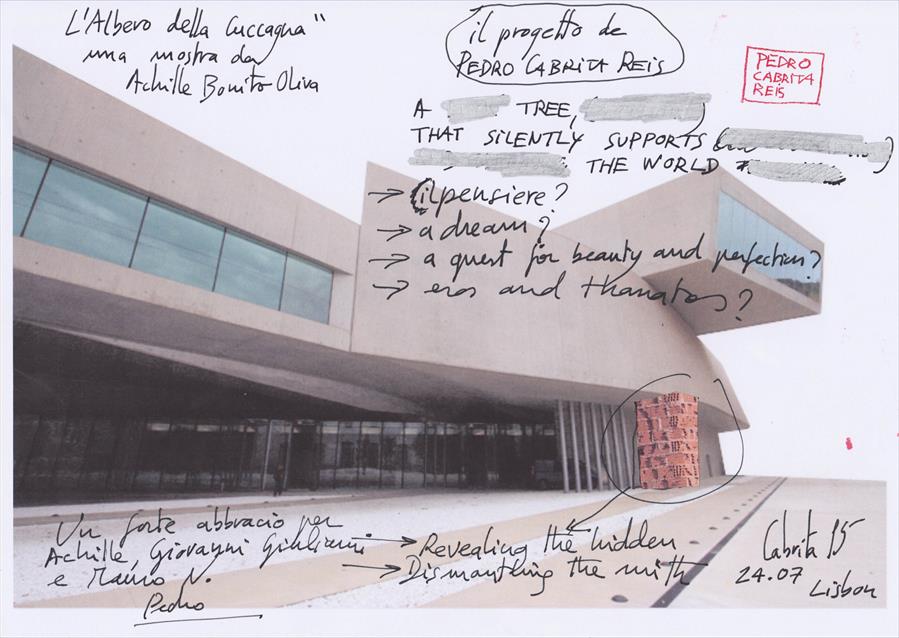 L'Albero della Cuccagna"
una mostra da
Achille Bonito Oliva
il progetto de
PEDRO CABRITA REIS
PEDRO
CABRITA
REIS
A TREE,
THAT SILENTLY SUPPORTS
THE WORLD
→ il pensiere?
→ a dream?
→ a quest for beauty and perfection?
→ eros and thanatos?
Un forte abbracio per
Achille, Giovanni Giuliani
e Mauro N.
Pedro
→ Revealing the hidden
→ Dismantling the mith
Cabrita 15
24.07
Lisbon